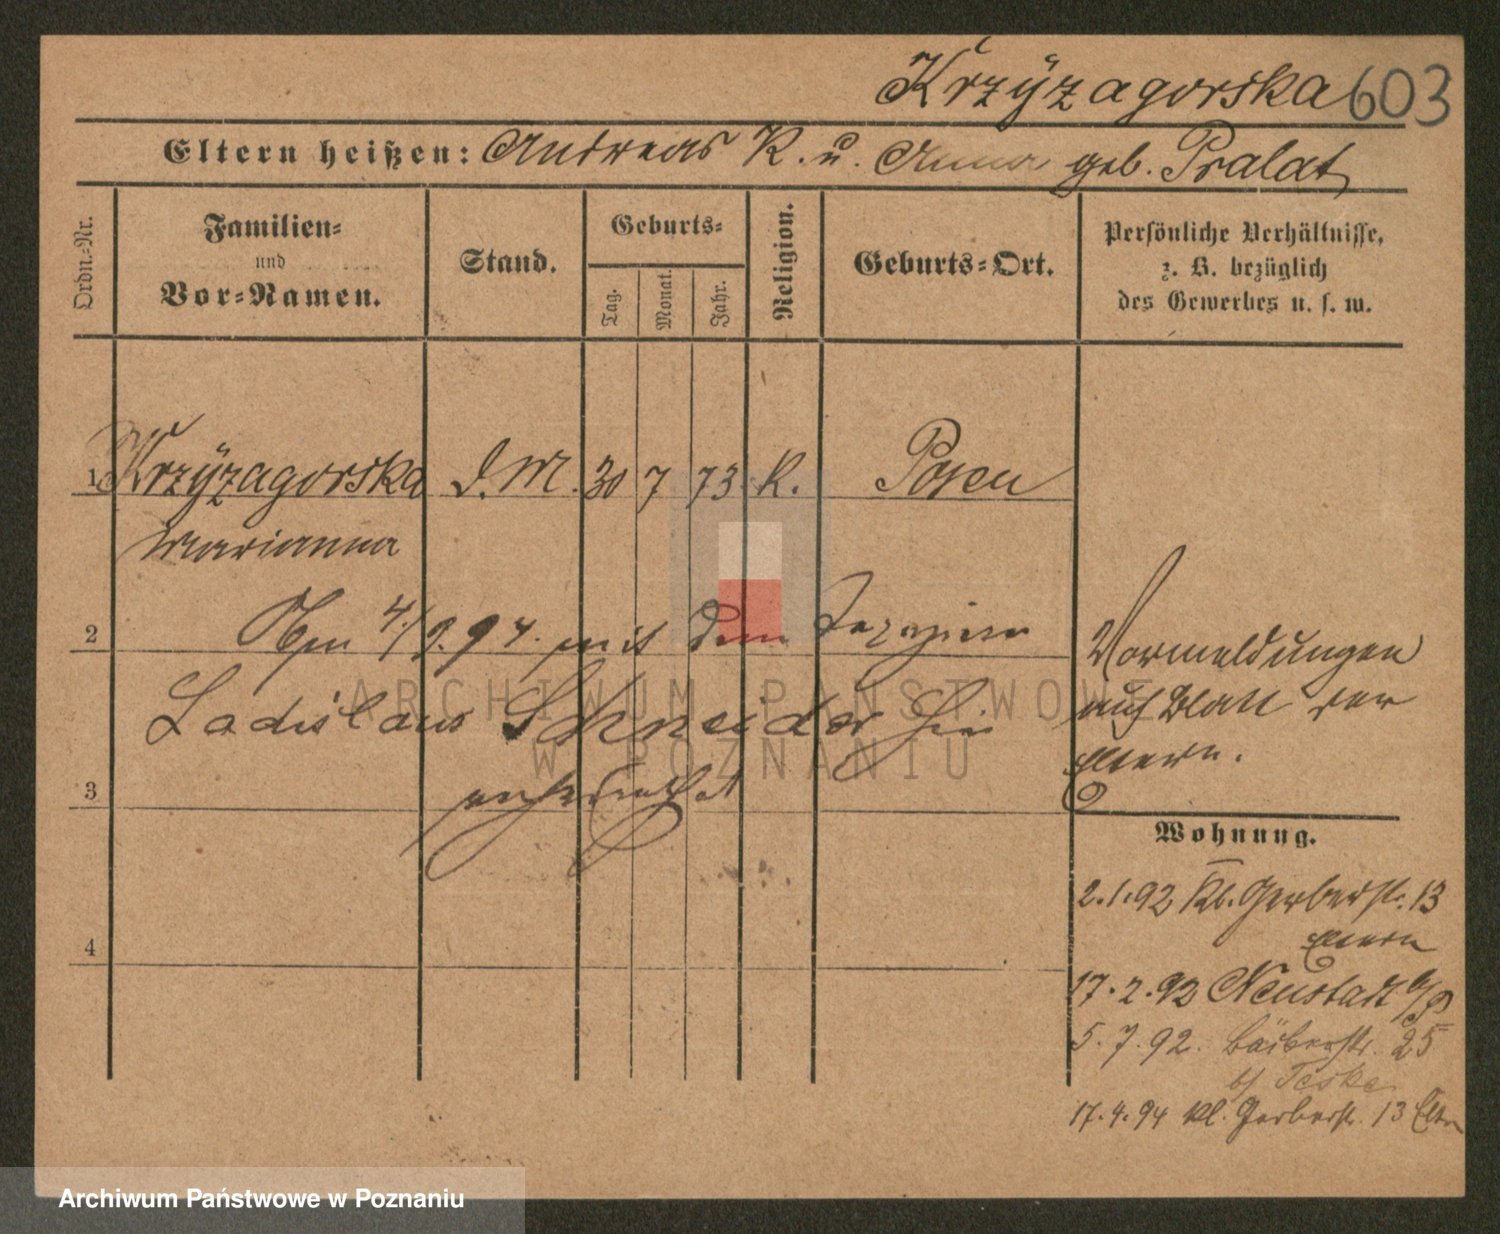 Krzyżagorska 603
Eltern heißen: Andreas K. u. Anna geb. Pralat
Ordn.-Nr.
Familien-
und
Vor-Namen.
Stand.
Geburts-
Tag.
Monat.
Jahr.
Religion.
Geburts-Ort.
Persönliche Verhältnisse,
z. B. bezüglich
des Gewerbes u. s. w.
1 Krzyżagorska d. M. 30 7 73 K. Posen
Marianna
2 4/9.94. mit dem Tapezierer
Ladislaus Schneider hier
3 verheirathet
4
Vormeldungen
auf Blatt der
Eltern.
Wohnung.
2.1.92 Kl. Gerberstr. 13
Eltern
17.2.92 Neustadt a/P
5.7.92. Bäckerstr. 25
b/ Teske
17.4.94 Kl. Gerberstr. 13 Eltern
ARCHIWUM PAŃSTWOWE
W POZNANIU
Archiwum Państwowe w Poznaniu